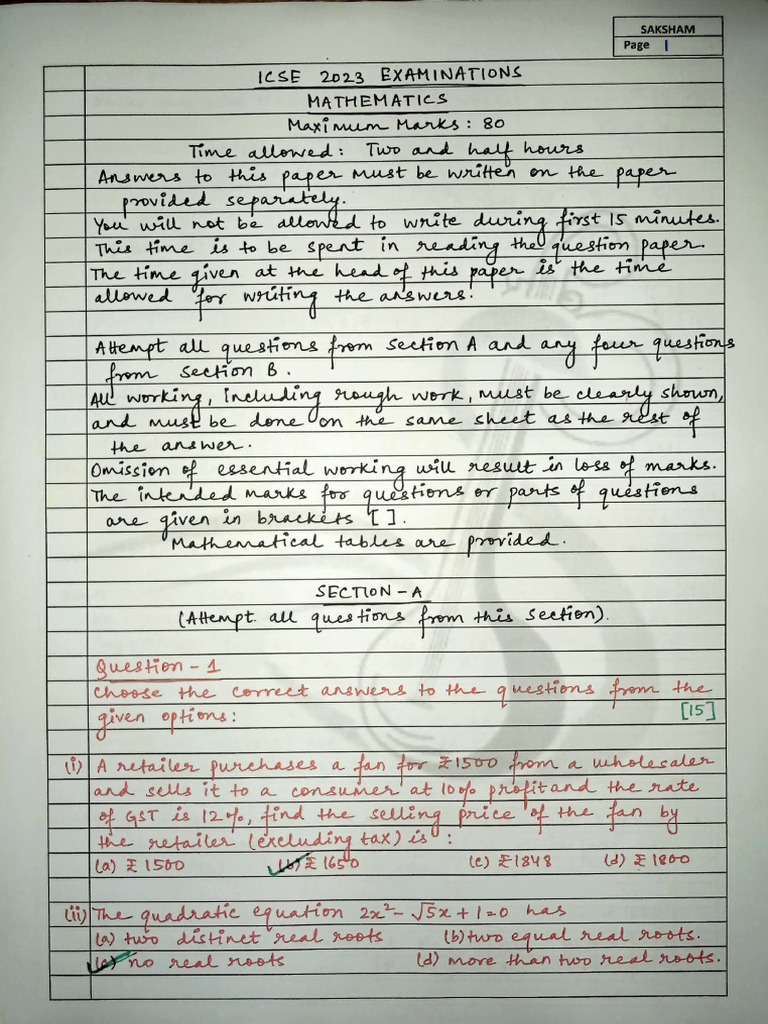 SAKSHAM
Page 1
ICSE 2023 EXAMINATIONS
MATHEMATICS
Maximum Marks: 80
Time allowed: Two and half hours
Answers to this paper must be written on the paper
provided separately.
You will not be allowed to write during first 15 minutes.
This time is to be spent in reading the question paper.
The time given at the head of this paper is the time
allowed for writing the answers.
Attempt all questions from Section A and any four questions
from section B.
All working, including rough work, must be clearly shown,
and must be done on the same sheet as the rest of
the answer.
Omission of essential working will result in loss of marks.
The intended marks for questions or parts of questions
are given in brackets [ ].
Mathematical tables are provided.
SECTION-A
(Attempt all questions from this Section).
Question-1
Choose the correct answers to the questions from the
given options: [15]
(i) A retailer purchases a fan for ₹1500 from a wholesaler
and sells it to a consumer at 10% profit and the rate
of GST is 12%, find the selling price of the fan by
the retailer (excluding tax) is :
(a) ₹ 1500 (b) ₹ 1650 (c) ₹1848 (d) ₹ 1800
(ii) The quadratic equation 2x² - √5x + 1 = 0 has
(a) two distinct real roots (b) two equal real roots.
(c) no real roots (d) more than two real roots.